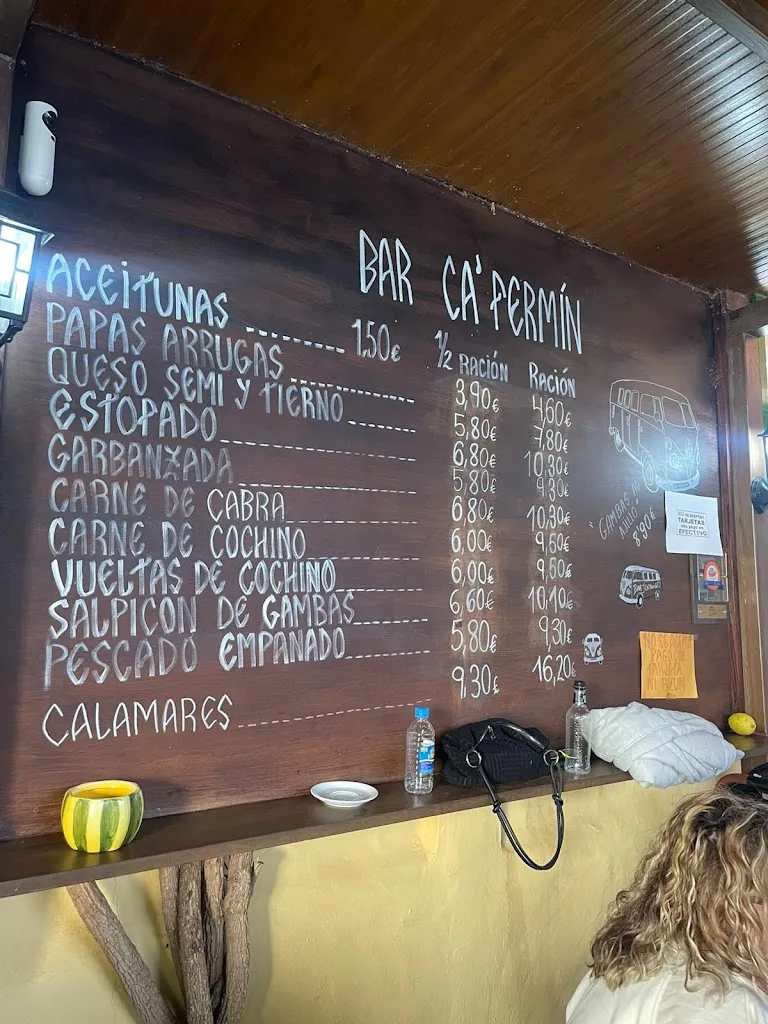 BAR CA' FERMÍN
½ RACIÓN RACIÓN
ACEITUNAS 1.50€
PAPAS ARRUGAS 3,90€ 4,60€
QUESO SEMI Y TIERNO 5,80€ 7,80€
ESTOPADO 6,80€ 10,30€
GARBANZADA 5,80€ 9,30€
CARNE DE CABRA 6,80€ 10,30€
CARNE DE COCHINO 6,00€ 9,60€
VUELTAS DE COCHINO 6,00€ 9,60€
SALPICON DE GAMBAS 6,60€ 10,10€
PESCADO EMPANADO 5,80€ 9,30€
CALAMARES 9,30€ 16,20€
"GAMBAS AL
AJILLO"
8'90€
NO SE ACEPTAN
TARJETAS
solo pago en
EFECTIVO
NO SE
PAGO